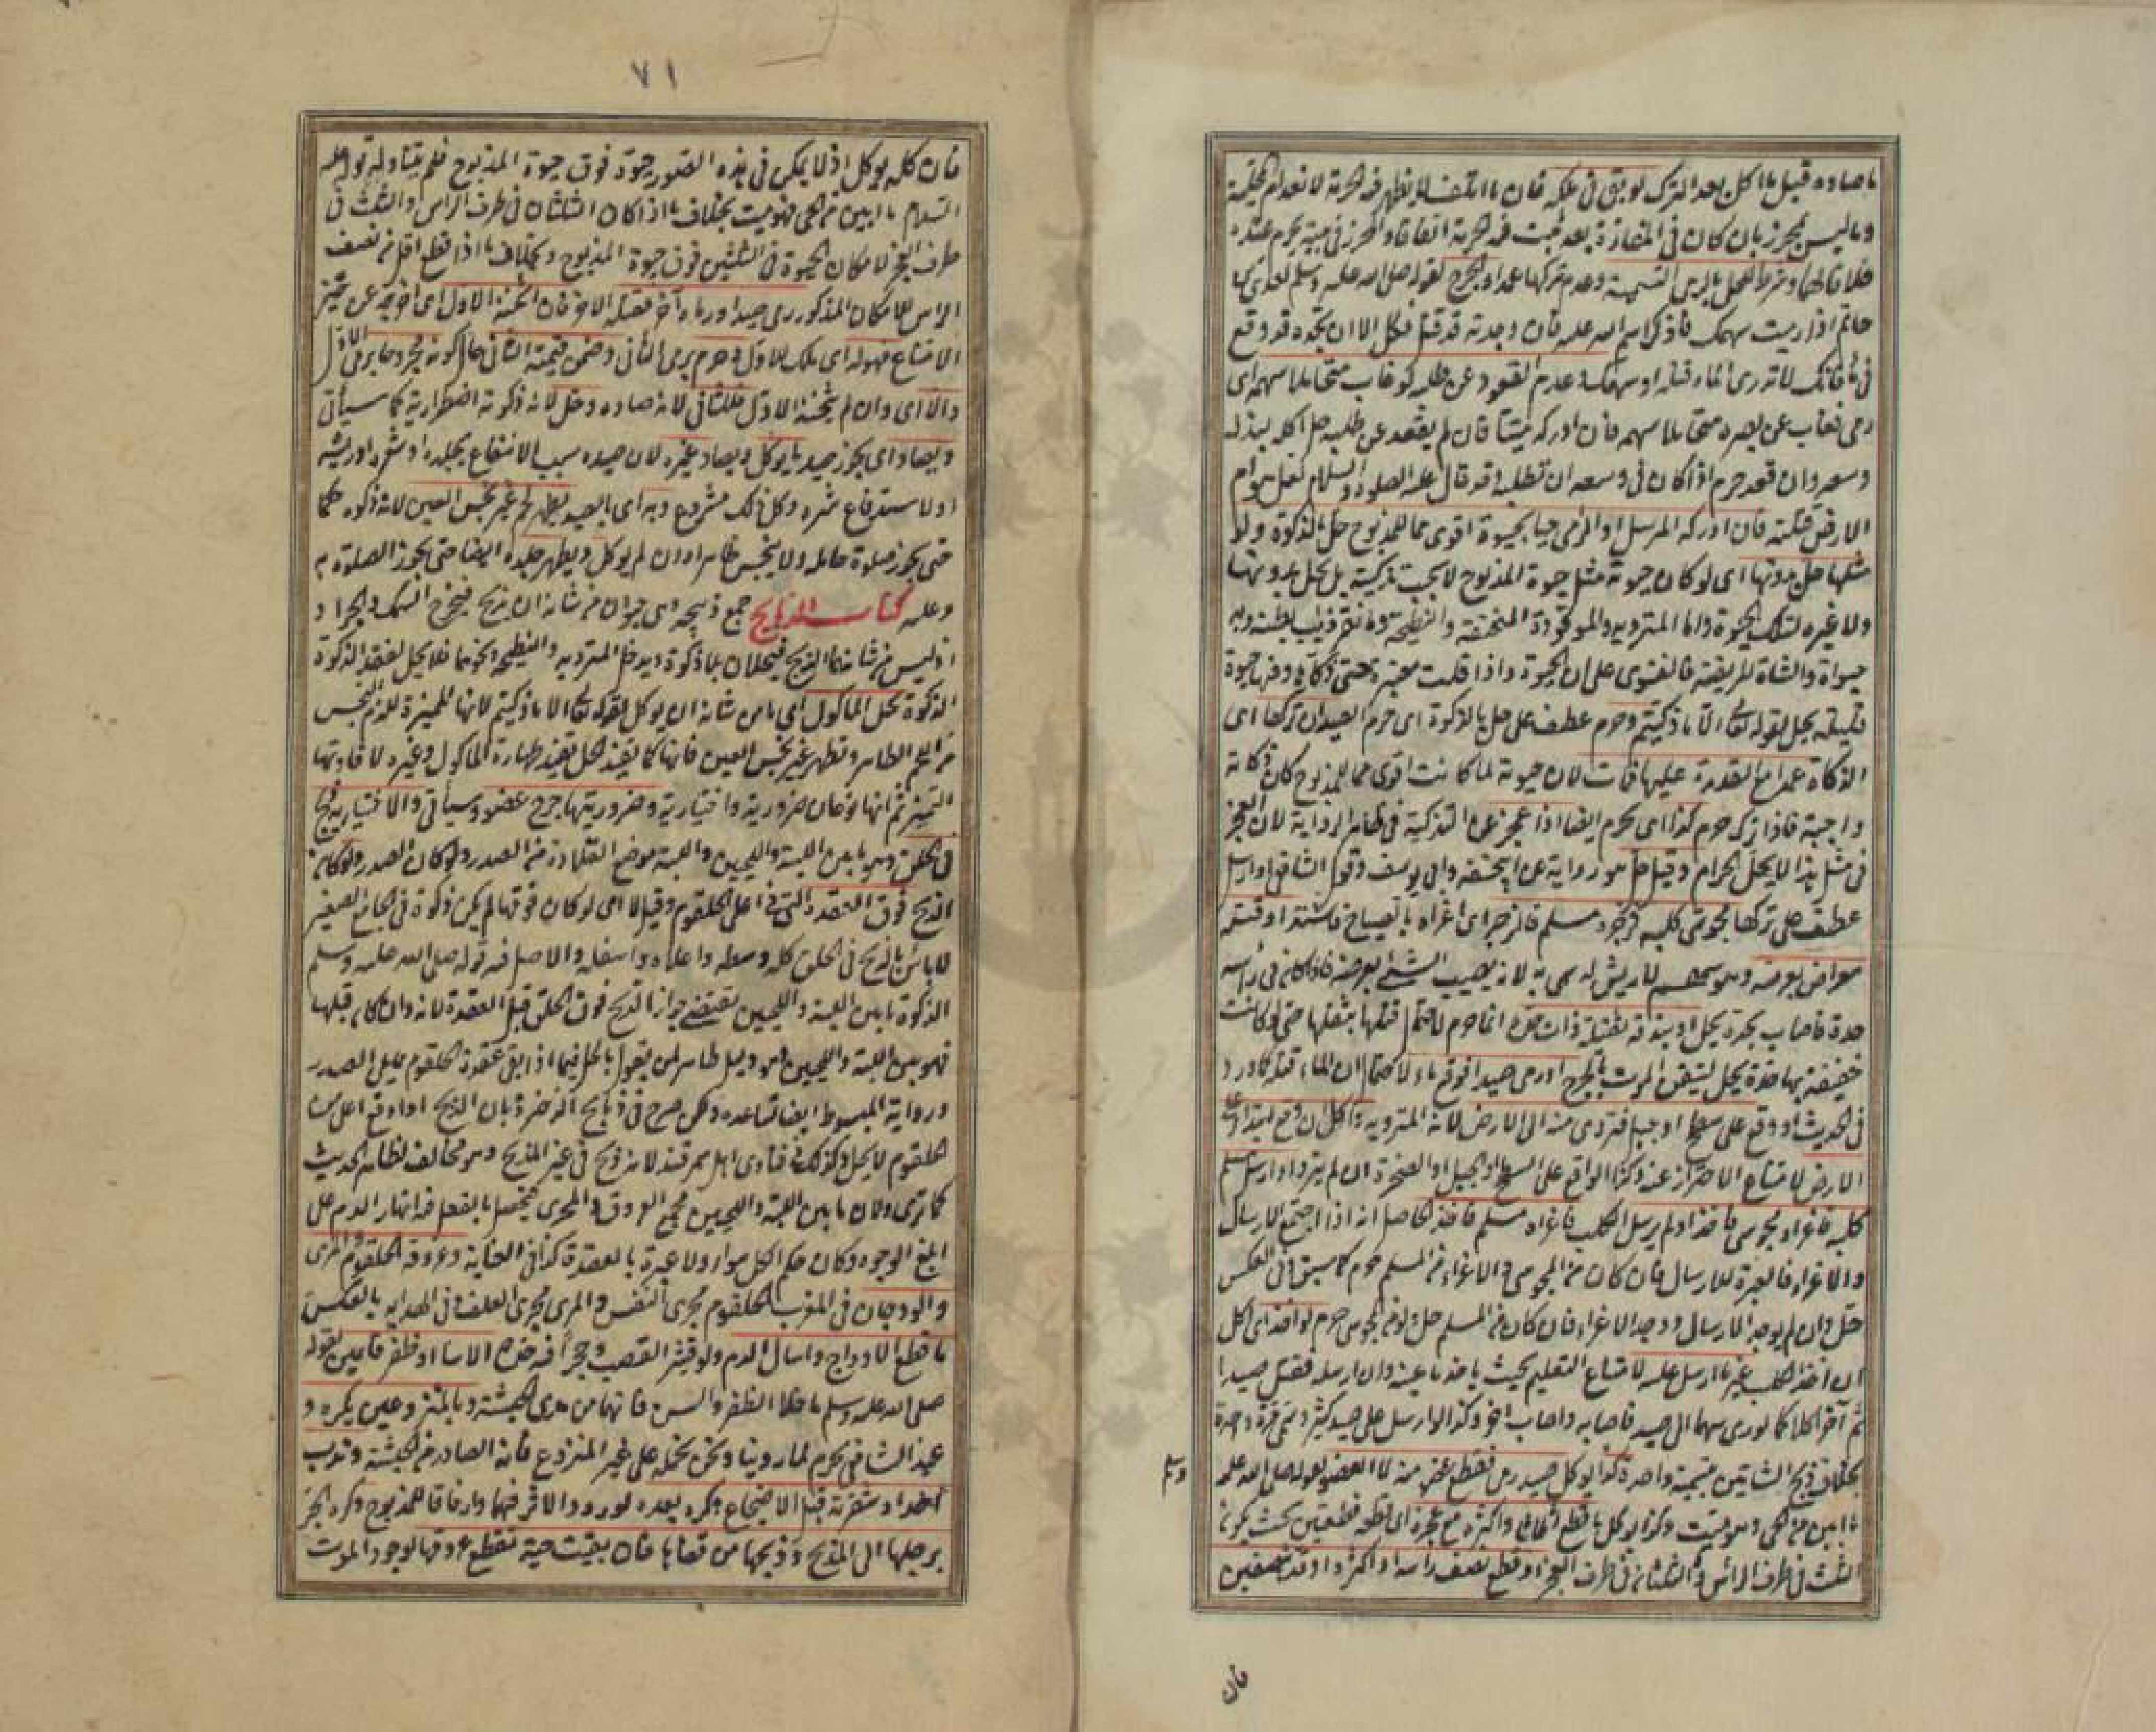 ما صاده قبيل ما اكل بعد الترك لو بقي في ملكه فان ما اتلف لا يظهر فيه الحرمة لانعدام المحلية
وما ليس بمحرز بان كان في المفازة بعد تثبت فيه الحرمة اتفاقا والمحرز في بيته يحرم عنده
خلافا لهما وشرط للحل بالرمي التسمية وعدم تركها عمدا والجرح لقوله صلى الله عليه وسلم لعدي بن
حاتم اذا رميت سهمك فاذكر اسم الله عليه فان وجدته قد قتل فكل الا ان تجده قد وقع
في ماء فانك لا تدري الماء قتله او سهمك وعدم القعود عن طلبه لو غاب متحاملا سهمه اي
رمي فغاب عن بصره متحاملا سهمه فان ادركه ميتا فان لم يقعد عن طلبه حل اكله لبذله
وسعه وان قعد حرم اذا كان في وسعه ان تطلبه وقد قال عليه الصلوة والسلام لعل هوام
الارض قتلته فان ادركه المرسل او الرامي حيا بحيوة اقوى مما للمذبوح حل بالذكوة ولو
مثلها حل بدونها اي لو كان حيوته مثل حيوة المذبوح لا يجب تذكيته بل يحل بدونها
ولا غيره لتلك الحيوة واما المتردية والموقوذة المنخنقة والنطيحة وما نقر ذئب بطنه وبه
حيوة والشاة المريضة فالفتوى على ان الحيوة واذا قلت معتبرة حتى ذكاها وفيها حيوة
قليلة يحل لقوله تعالى الا ما ذكيتم وحرم عطف على حل بالذكوة اي حرم الصيد ان تركها اي
الذكاة عمدا مع القدرة عليها فمات لان حيوته لما كانت اقوى مما للمذبوح كان ذكاته
واجبة فاذا تركه حرم كذا اي يحرم ايضا اذا عجز عن التذكية في ظاهر الرواية لان العجز
في مثل هذا لا يحل الحرام وقيل حل هو رواية عن ابي حنيفة وابي يوسف وقول الشافعي او ارسل
عطف على تركها مجوسي كلبه فزجره مسلم فانزجر اي اغراه بالصياح فاشتد او قتله
معراض بعرضه وهو سهم لا ريش له سمي به لانه يصيب الشيء بعرضه فاذا كان في رأسه
حدة فاصاب بحده يحل او بندقة ثقيلة ذات حدة انما حرم لاحتمال قتلها بثقلها حتى لو كانت
خفيفة بها حدة يحل لتيقن الموت بالجرح او رمى صيدا فوقع بماء لاحتمال ان الماء قتله كما ورد
في الحديث او وقع على سطح او جبل فتردى منه الى الارض لانه المتردية واكل ان وقع ابتداء على
الارض لامتناع الاحتراز عنه وكذا الواقع على السطح او الجبل او الصخرة ان لم يترد او ارسل مسلم
كلبه فاغراه مجوسي فاخذ او لم يرسل الكلب فاغراه مسلم فاخذ الحاصل انه اذا اجتمع الارسال
والاغراء فالعبرة للارسال فان كان من المجوسي والاغراء من المسلم حرم كما سبق وفي العكس
حل وان لم يوجد الارسال ووجد الاغراء فان كان من المسلم حل ولو من المجوسي حرم او اخذ اي اكل
ان اخذ الكلب غير ما ارسل عليه لامتناع التعليم بحيث ياخذ ما عينه وان ارسله فقتل صيدا
ثم آخر اكلا كما لو رمى سهما الى صيد فاصابه واصاب آخر وكذا لو ارسل على صيد كثير وسمى مرة واحدة
بخلاف ذبح الشاتين بتسمية واحدة كذا يوكل صيد رمي فقطع عضو منه لا العضو لقوله صلى الله عليه
وسلم
ما ابين من الحي وهو ميت وكذا يوكل ما قطع اثلاثا واكثره مع عجزه اي قطعه قطعتين بحيث يكون
الثلث في طرف الرأس والثلثان في طرف العجز او قطع نصف رأسه او اكثره او قد نصفين
فان
٧١
فان كله يوكل اذ لا يمكن في هذه الصور حيوة فوق حيوة المذبوح فلم يتناوله قوله عليه
السلام ما ابين من الحي فهو ميت بخلاف ما اذا كان الثلثان في طرف الراس او الثلث في
طرف العجز لامكان الحيوة في الثلثين فوق حيوة المذبوح وبخلاف ما اذا قطع اقل من نصف
الراس للامكان المذكور رمى صيدا ورماه آخر فقتله الاخر فان اثخنه الاول اي اخرجه عن حيز
الامتناع فهو له اي ملك للاول وحرم برمي الثاني وضمن قيمته الثاني حال كونه مجروحا برمي الاول
والا اي وان لم يثخنه الاول فللثاني لانه صاده وحل لانه ذكوته اضطرارية كما سيأتي
ويصاد اي يجوز صيد ما يوكل ويصاد غيره لان صيده سبب الانتفاع بجلده او شعره او ريشه
او لاستدفاع شره وكل ذلك مشروع وبه اي بالصيد يطهر لحم غير نجس العين لانه ذكوة حكما
حتى يجوز صلوة حامله ولا ينجس طاهرا وان لم يوكل ويطهر جلده ايضا حتى يجوز الصلوة به
وعليه كتاب الذبايح جمع ذبيحة وهي حيوان من شانه ان يذبح فيخرج السمك والجراد
اذ ليس من شانهما الذبح فيحلان بلا ذكوة ويدخل المتردية والنطيحة ونحوها فلا يحل لفقد الذكوة
الذكوة تحل الماكول اي ما من شانه ان يوكل لقوله تعالى الا ما ذكيتم لانها المميزة للدم النجس
من اللحم الطاهر وتطهر غير نجس العين فانها كما يفيد الحل تفيد طهارة الماكول وغيره لافادتها
التميز ثم انها نوعان ضرورية واختيارية وضروريتها جرح عضو وسيأتي والاختيارية ذبح
في الحلق وهو ما بين اللبة واللحيين واللبة موضع القلادة من الصدر ولو كان الصدر ولو كان
الذبح فوق العقدة التي في اعلى الحلقوم وقيل لا اي لو كان فوقها لم يكن ذكوة في الجامع الصغير
لا باس بالذبح في الحلق كله وسطه واعلاه واسفله والاصل فيه قوله صلى الله عليه وسلم
الذكوة ما بين اللبة واللحيين يقتضي جواز الذبح فوق الحلق قبل العقدة لانه وان كان قبلها
فهو بين اللبة واللحيين وهو دليل ظاهر لمن يقول بالحل فيما اذا بقي عقدة الحلقوم مما يلي الصدر
ورواية المبسوط ايضا تساعده ولكن صرح في ذبايح الذخيرة بان الذبح اذا وقع اعلى من
الحلقوم لا يحل وكذلك في فتاوى اهل سمرقند لانه ذبح في غير المذبح وهو مخالف لظاهر الحديث
كما ترى ولان ما بين اللبة واللحيين مجمع العروق والمجرى فيحصل بالفعل فيه انهار الدم على
ابلغ الوجوه وكان حكم الكل سواء ولا عبرة بالعقدة كذا في العناية وعروقه الحلقوم والمرى
والودجان في المغرب الحلقوم مجرى النفس والمرى مجرى العلف وفي الهداية بالعكس
ما قطع الاوداج واسال الدم ولو قشر القصب وحجرا فيه حدة الا سنا او ظفر قائمين لقوله
صلى الله عليه وسلم ما خلا الظفر والسن فانهما من مدى الحبشة وبالمنزوعين يكره و
عند الشافعي يحرم لما روينا ونحن نحمله على غير المنزوع فانه الصادر من الحبشة وندب
احداد شفرته قبل الاضجاع وكره بعده لورود الاثر فيهما وارفاقا للمذبوح وكره الجر
برجلها الى المذبح وذبحها من قفاها فان بقيت حية تقطع عروقها لوجود الموت